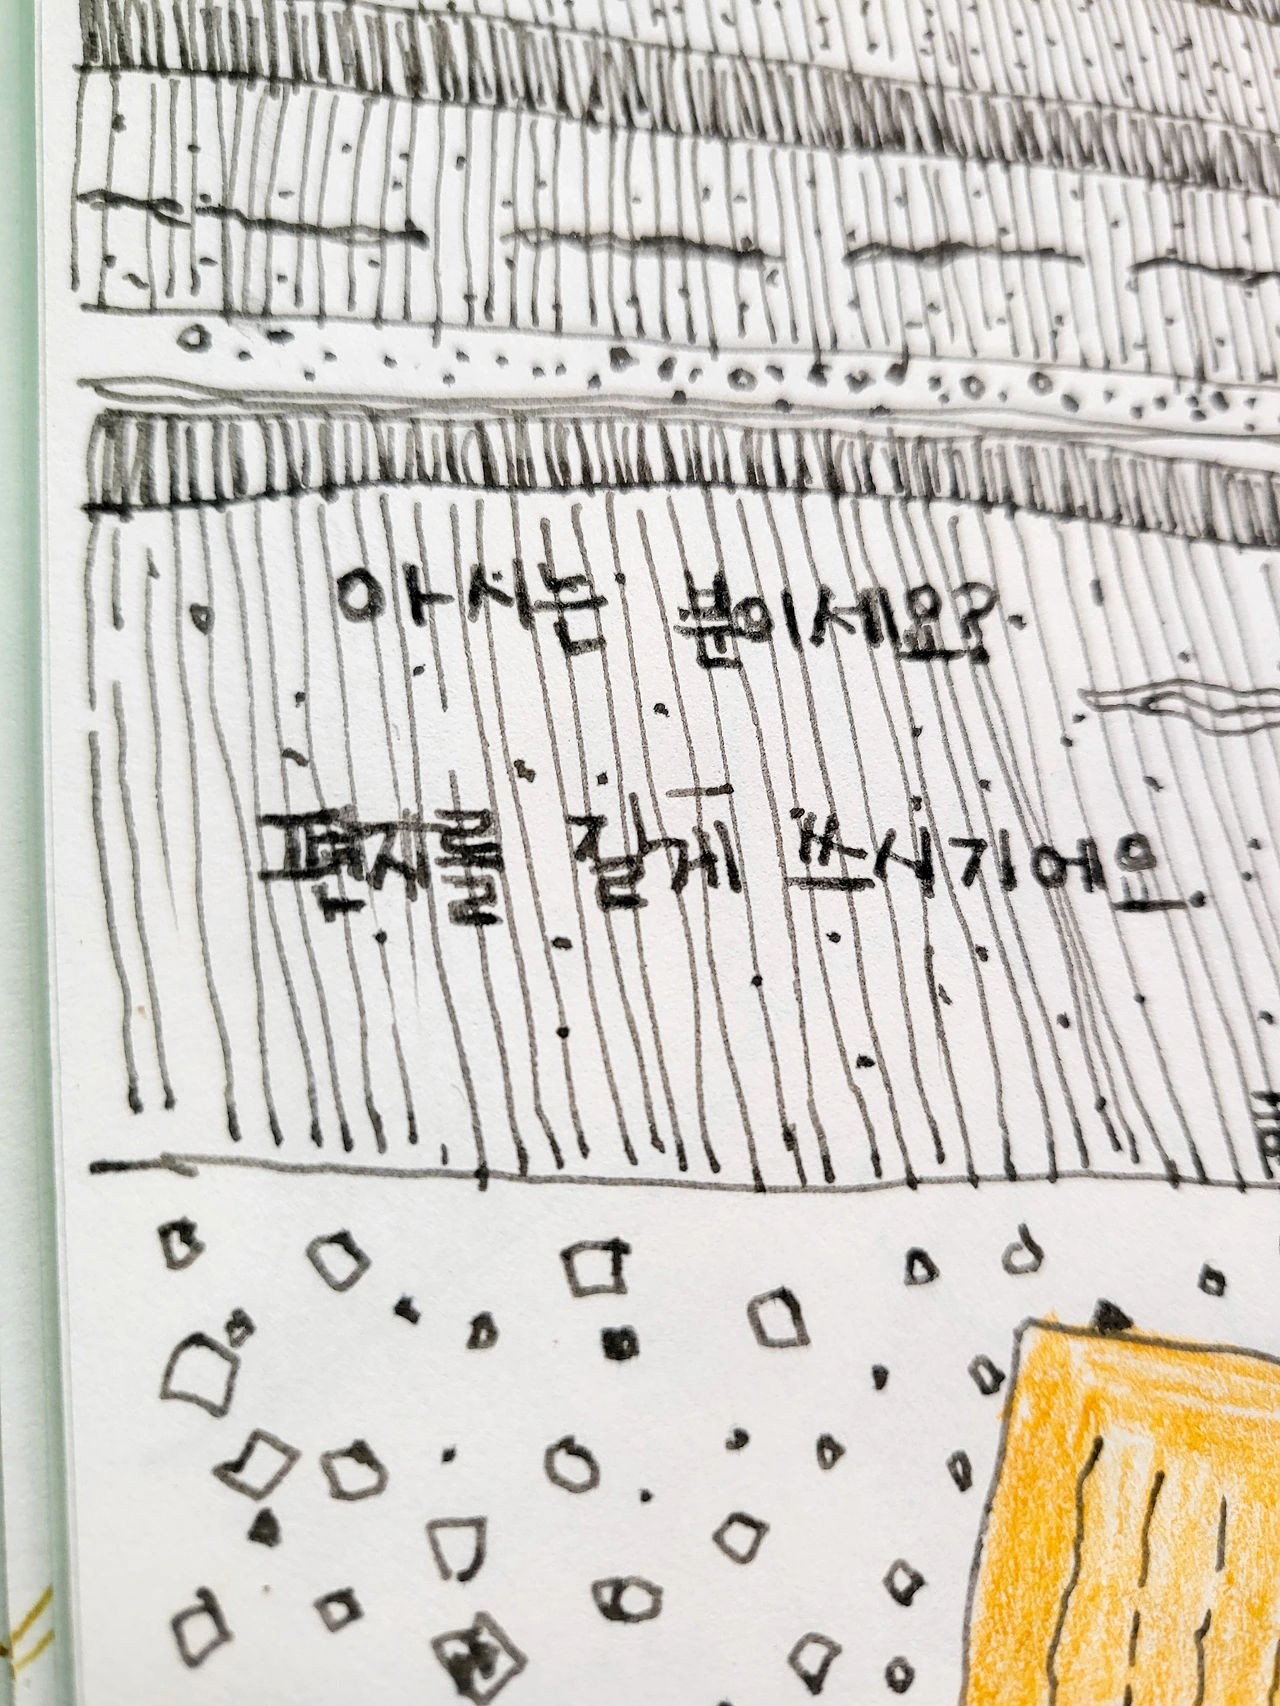 아시는 분이세요?
편지를 길게 쓰시기에요.